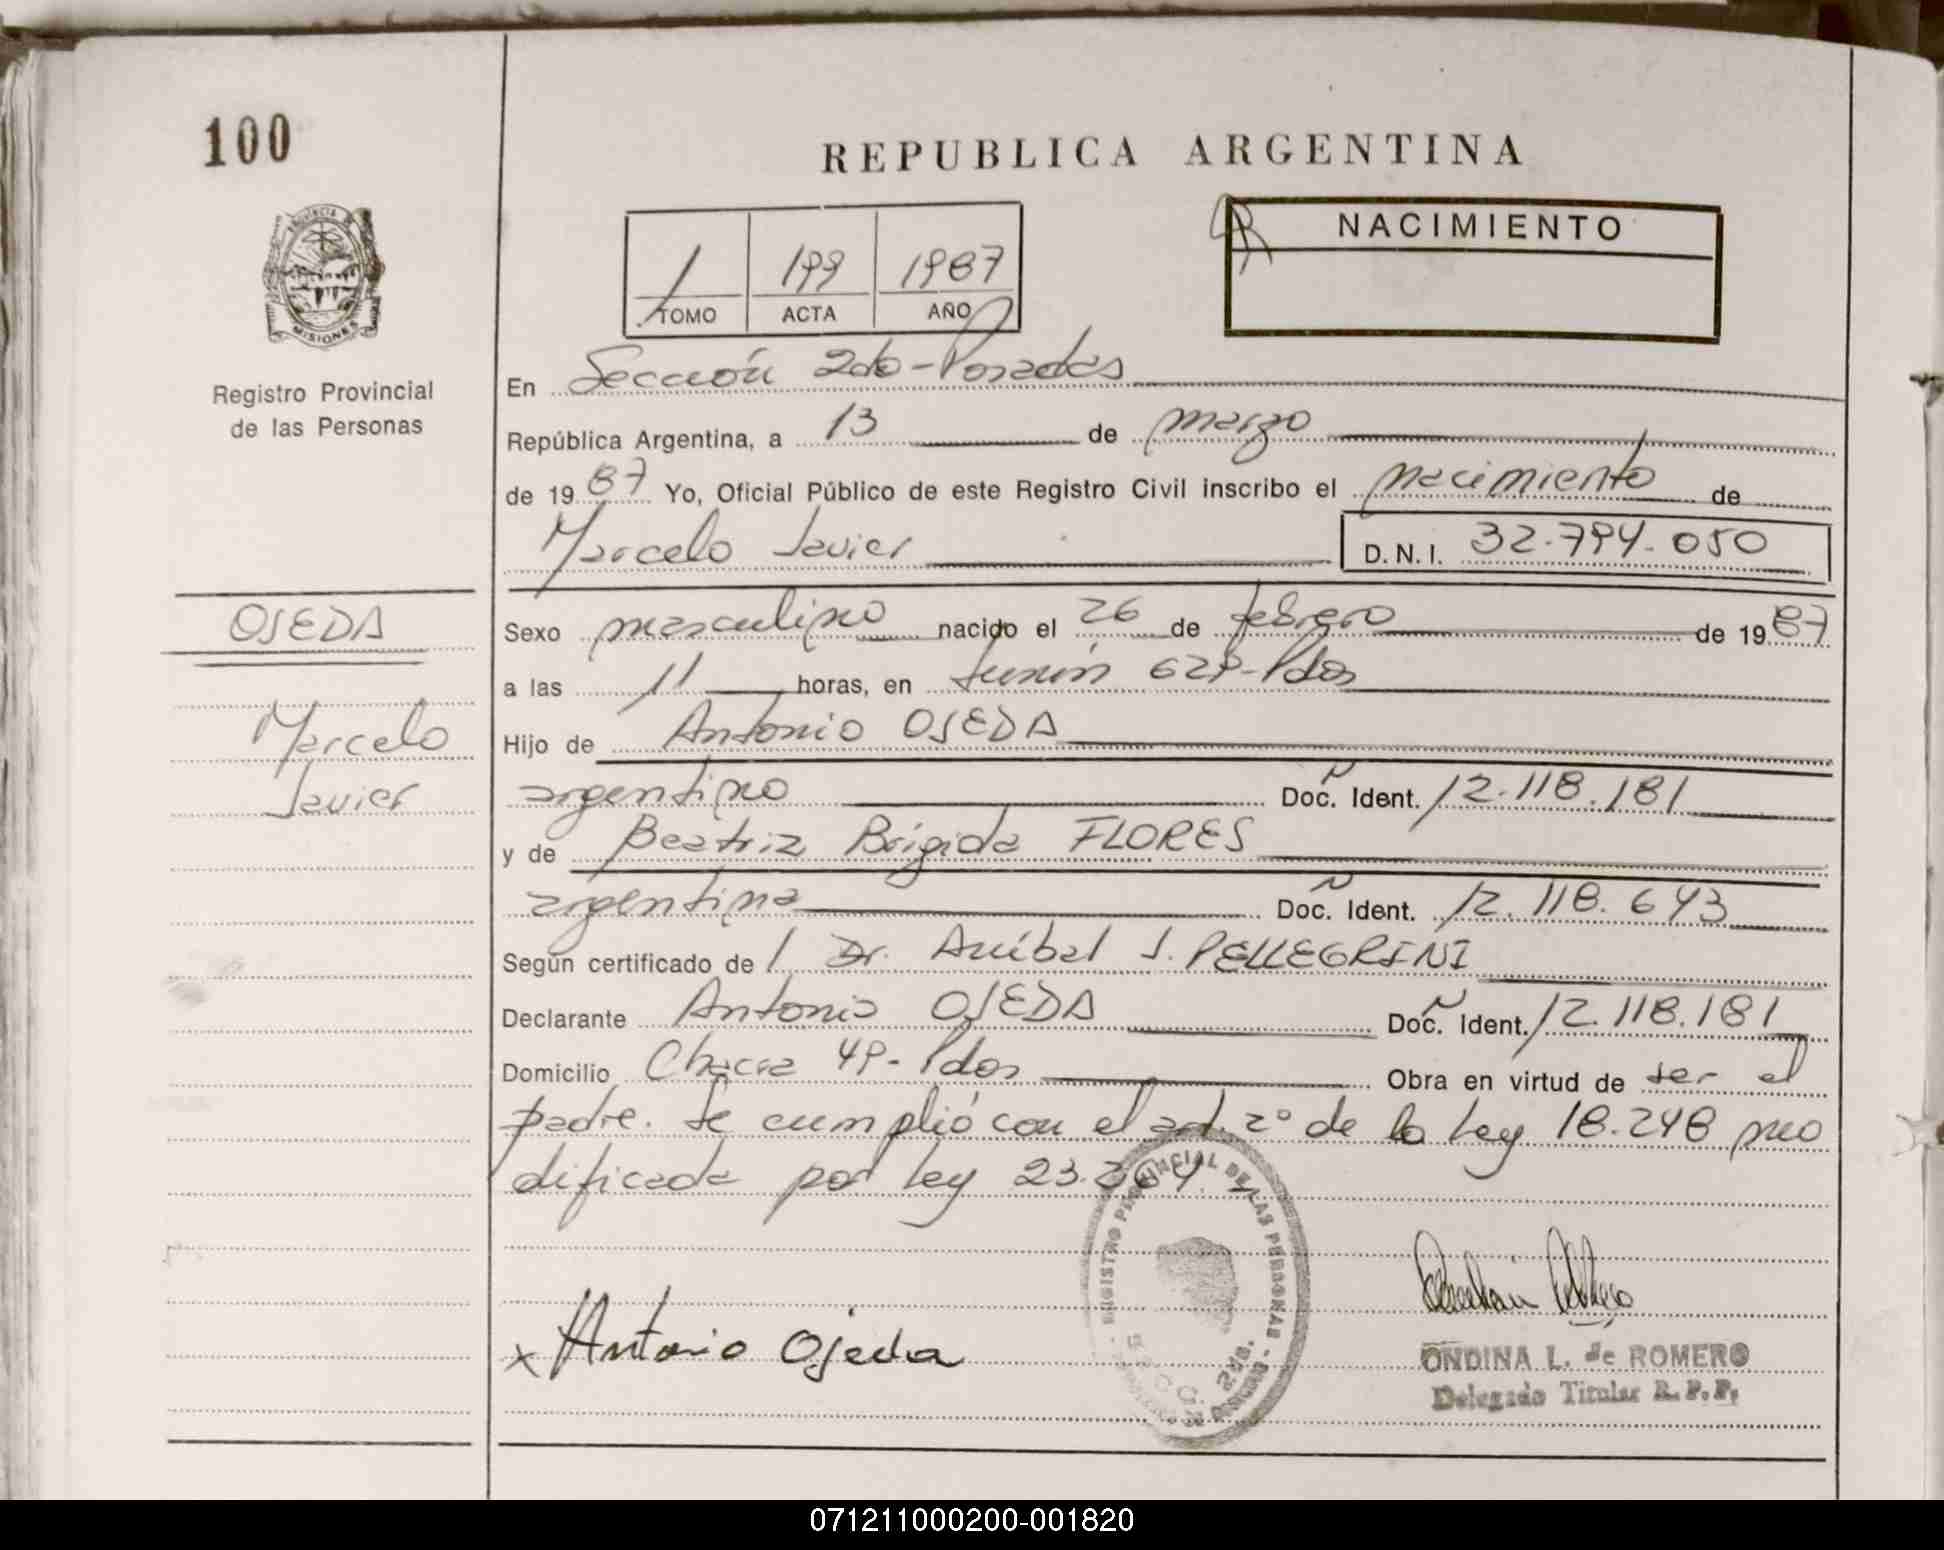 100
REPUBLICA ARGENTINA
NACIMIENTO
1 199 1987
TOMO ACTA AÑO
PROVINCIA DE
MISIONES
Registro Provincial
de las Personas
En Sección 2do-Posadas
República Argentina, a 13 de marzo
de 1987 Yo, Oficial Público de este Registro Civil inscribo el nacimiento de
Marcelo Javier D.N.I. 32.794.050
OJEDA
Marcelo
Javier
Sexo masculino nacido el 26 de febrero de 1987
a las 11 horas, en Junín 629-Pdas
Hijo de Antonio OJEDA
argentino Doc. Ident. 12.118.181
y de Beatriz Brígida FLORES
argentina Doc. Ident. 12.118.643
Según certificado de l Dr. Aníbal J. PELLEGRINI
Declarante Antonio OJEDA Doc. Ident. 12.118.181
Domicilio Chacra 49-Pdas Obra en virtud de ser el
padre. Se cumplió con el art. 2º de la Ley 18.248 mo
dificada por ley 23.264.
REGISTRO PROVINCIAL DE LAS PERSONAS
x Antonio Ojeda
ONDINA L. de ROMERO
Delegado Titular R.P.P.
071211000200-001820